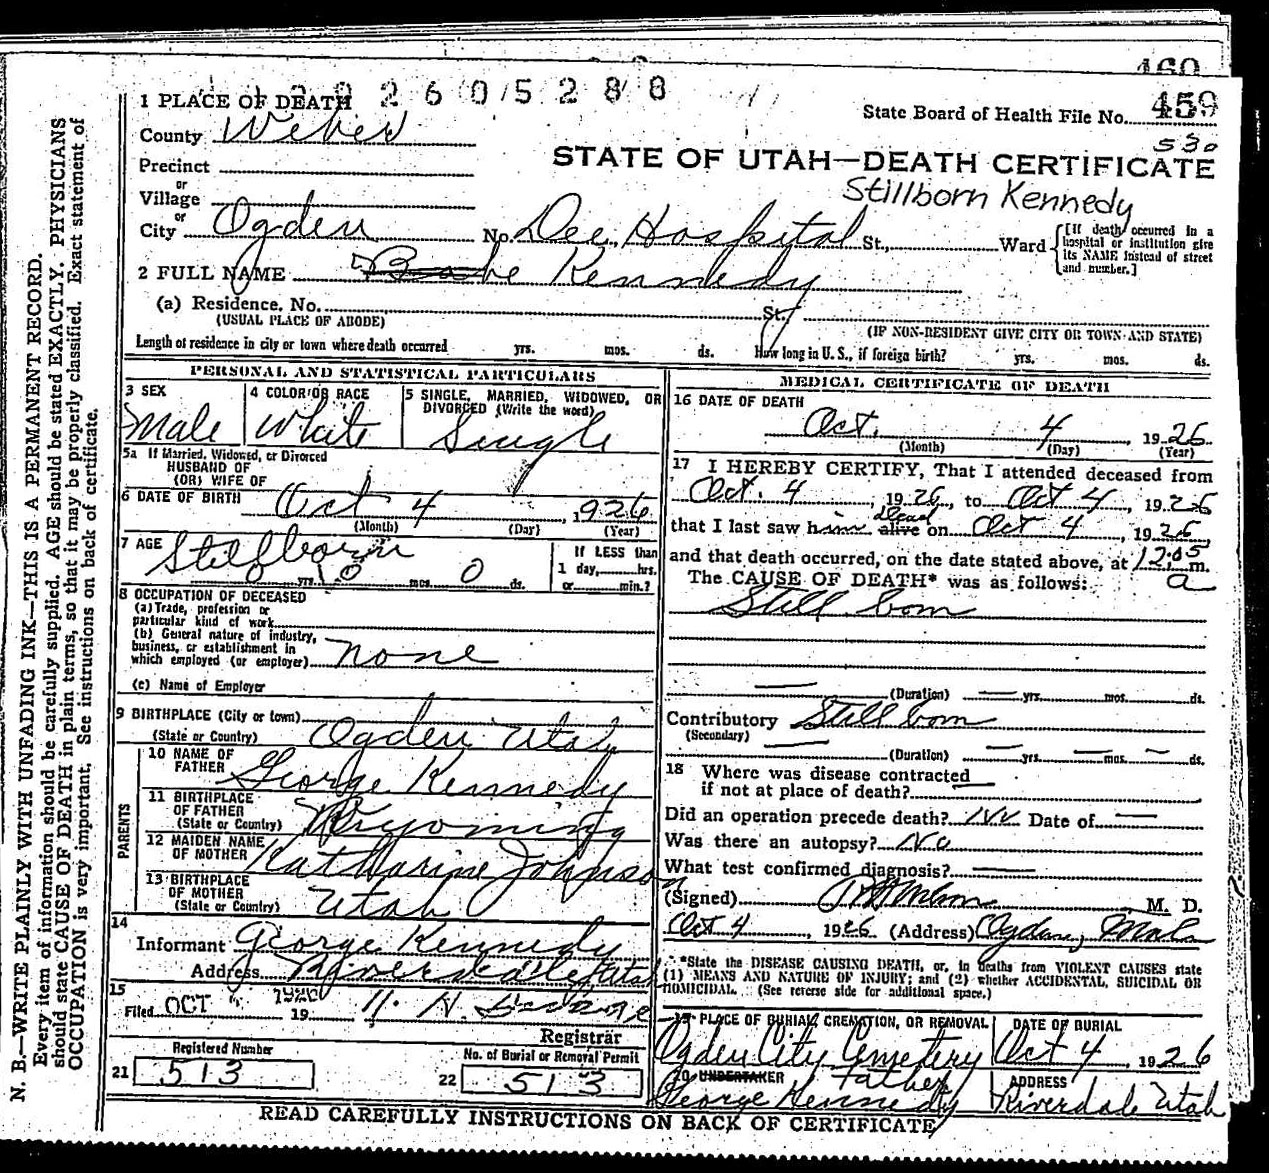 460
2 6 0 5 2 8 8
1 PLACE OF DEATH
State Board of Health File No. 459
County Weber
530
STATE OF UTAH—DEATH CERTIFICATE
Precinct
Stillborn Kennedy
or
Village
or
City Ogden No. Dee Hospital St., Ward
[If death occurred in a hospital or institution give its NAME instead of street and number.]
2 FULL NAME Kennedy
(a) Residence. No. St.
(USUAL PLACE OF ABODE) (IF NON-RESIDENT GIVE CITY OR TOWN AND STATE)
Length of residence in city or town where death occurred yrs. mos. ds. How long in U. S., if foreign birth? yrs. mos. ds.
PERSONAL AND STATISTICAL PARTICULARS
3 SEX 4 COLOR OR RACE 5 SINGLE, MARRIED, WIDOWED, OR
DIVORCED (Write the word)
Male White Single
5a If Married, Widowed, or Divorced
HUSBAND OF
(OR) WIFE OF
6 DATE OF BIRTH Oct 4, 1926
(Month) (Day) (Year)
7 AGE Stillborn
yrs. 0 mos. 0 ds.
If LESS than
1 day, hrs.
or min.?
8 OCCUPATION OF DECEASED
(a) Trade, profession or
particular kind of work
(b) General nature of industry,
business, or establishment in
which employed (or employer) none
(c) Name of Employer
9 BIRTHPLACE (City or town)
(State or Country) Ogden Utah
PARENTS
10 NAME OF
FATHER George Kennedy
11 BIRTHPLACE
OF FATHER
(State or Country) Wyoming
12 MAIDEN NAME
OF MOTHER Katharine Johnson
13 BIRTHPLACE
OF MOTHER
(State or Country) Utah
14
Informant George Kennedy
Address Riverdale Utah
15
Filed OCT 4 1926 19
Registrar
Registered Number
21 513
No. of Burial or Removal Permit
22 513
MEDICAL CERTIFICATE OF DEATH
16 DATE OF DEATH
Oct. 4, 1926
(Month) (Day) (Year)
17 I HEREBY CERTIFY, That I attended deceased from
Oct. 4, 1926, to Oct 4, 1926
that I last saw him alive dead on Oct 4, 1926,
and that death occurred, on the date stated above, at 12.05 a m.
The CAUSE OF DEATH* was as follows:
Still born
(Duration) yrs. mos. ds.
Contributory Still born
(Secondary)
(Duration) yrs. mos. ds.
18 Where was disease contracted
if not at place of death?
Did an operation precede death? No Date of
Was there an autopsy? No
What test confirmed diagnosis?
(Signed) M. D.
Oct 4, 1926 (Address) Ogden, Utah
*State the DISEASE CAUSING DEATH, or, in deaths from VIOLENT CAUSES state
(1) MEANS AND NATURE OF INJURY; and (2) whether ACCIDENTAL, SUICIDAL OR
HOMICIDAL. (See reverse side for additional space.)
19 PLACE OF BURIAL, CREMATION, OR REMOVAL DATE OF BURIAL
Ogden City Cemetery Oct 4, 1926
20 UNDERTAKER Father ADDRESS
George Kennedy Riverdale Utah
READ CAREFULLY INSTRUCTIONS ON BACK OF CERTIFICATE
N. B.—WRITE PLAINLY WITH UNFADING INK—THIS IS A PERMANENT RECORD.
Every item of information should be carefully supplied. AGE should be stated EXACTLY. PHYSICIANS
should state CAUSE OF DEATH in plain terms, so that it may be properly classified. Exact statement of
OCCUPATION is very important. See instructions on back of certificate.